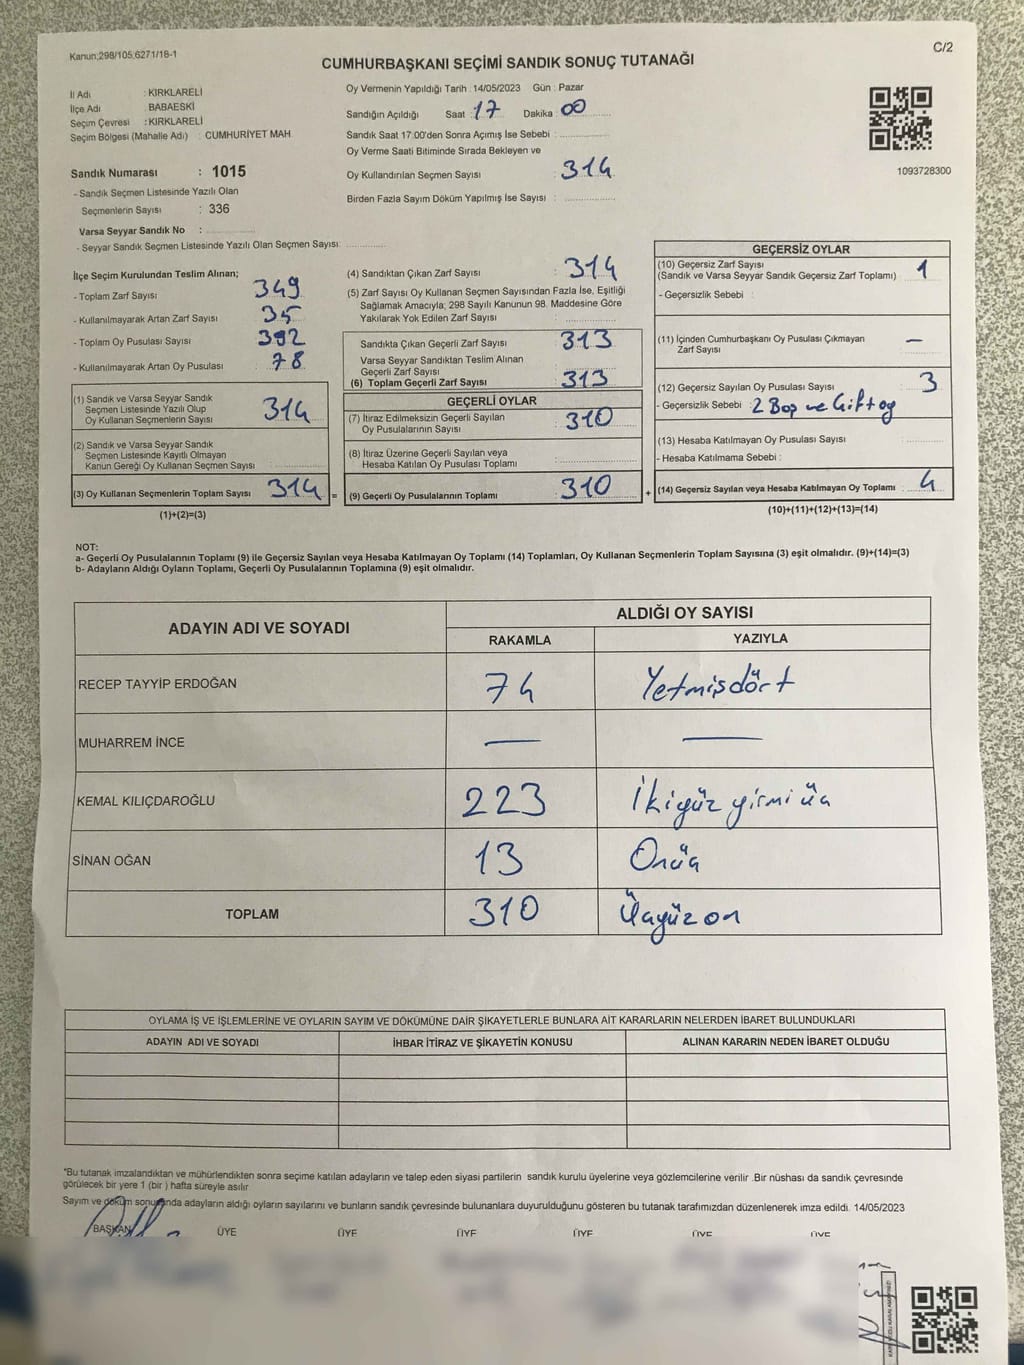 Kanun:298/105;6271/18-1
C/2
CUMHURBAŞKANI SEÇİMİ SANDIK SONUÇ TUTANAĞI
İl Adı : KIRKLARELİ
İlçe Adı : BABAESKİ
Seçim Çevresi : KIRKLARELİ
Seçim Bölgesi (Mahalle Adı) : CUMHURİYET MAH.
Sandık Numarası : 1015
- Sandık Seçmen Listesinde Yazılı Olan
Seçmenlerin Sayısı : 336
Varsa Seyyar Sandık No :
- Seyyar Sandık Seçmen Listesinde Yazılı Olan Seçmen Sayısı:
Oy Vermenin Yapıldığı Tarih : 14/05/2023 Gün : Pazar
Sandığın Açıldığı Saat : 17 Dakika : 00
Sandık Saat 17:00'den Sonra Açımış İse Sebebi :
Oy Verme Saati Bitiminde Sırada Bekleyen ve
Oy Kullandırılan Seçmen Sayısı : 314
Birden Fazla Sayım Döküm Yapılmış İse Sayısı :
1093728300
İlçe Seçim Kurulundan Teslim Alınan;
- Toplam Zarf Sayısı : 349
- Kullanılmayarak Artan Zarf Sayısı : 35
- Toplam Oy Pusulası Sayısı : 392
- Kullanılmayarak Artan Oy Pusulası : 78
(1) Sandık ve Varsa Seyyar Sandık
Seçmen Listesinde Yazılı Olup
Oy Kullanan Seçmenlerin Sayısı : 314
(2) Sandık ve Varsa Seyyar Sandık
Seçmen Listesinde Kayıtlı Olmayan
Kanun Gereği Oy Kullanan Seçmen Sayısı
(3) Oy Kullanan Seçmenlerin Toplam Sayısı 314 =
(1)+(2)=(3)
(4) Sandıktan Çıkan Zarf Sayısı : 314
(5) Zarf Sayısı Oy Kullanan Seçmen Sayısından Fazla İse, Eşitliği
Sağlamak Amacıyla; 298 Sayılı Kanunun 98. Maddesine Göre
Yakılarak Yok Edilen Zarf Sayısı :
Sandıkta Çıkan Geçerli Zarf Sayısı : 313
Varsa Seyyar Sandıktan Teslim Alınan
Geçerli Zarf Sayısı :
(6) Toplam Geçerli Zarf Sayısı : 313
GEÇERLİ OYLAR
(7) İtiraz Edilmeksizin Geçerli Sayılan
Oy Pusulalarının Sayısı : 310
(8) İtiraz Üzerine Geçerli Sayılan veya
Hesaba Katılan Oy Pusulası Toplamı
(9) Geçerli Oy Pusulalarının Toplamı 310 +
GEÇERSİZ OYLAR
(10) Geçersiz Zarf Sayısı
(Sandık ve Varsa Seyyar Sandık Geçersiz Zarf Toplamı) 1
- Geçersizlik Sebebi :
(11) İçinden Cumhurbaşkanı Oy Pusulası Çıkmayan
Zarf Sayısı —
(12) Geçersiz Sayılan Oy Pusulası Sayısı 3
- Geçersizlik Sebebi : 2 Boş ve Çift oy
(13) Hesaba Katılmayan Oy Pusulası Sayısı
- Hesaba Katılmama Sebebi :
(14) Geçersiz Sayılan veya Hesaba Katılmayan Oy Toplamı 4
(10)+(11)+(12)+(13)=(14)
NOT:
a- Geçerli Oy Pusulalarının Toplamı (9) ile Geçersiz Sayılan veya Hesaba Katılmayan Oy Toplamı (14) Toplamları, Oy Kullanan Seçmenlerin Toplam Sayısına (3) eşit olmalıdır. (9)+(14)=(3)
b- Adayların Aldığı Oyların Toplamı, Geçerli Oy Pusulalarının Toplamına (9) eşit olmalıdır.
ADAYIN ADI VE SOYADI ALDIĞI OY SAYISI
RAKAMLA YAZIYLA
RECEP TAYYİP ERDOĞAN 74 Yetmişdört
MUHARREM İNCE — —
KEMAL KILIÇDAROĞLU 223 İkiyüz yirmi üç
SİNAN OĞAN 13 Onüç
TOPLAM 310 Üçyüz on
OYLAMA İŞ VE İŞLEMLERİNE VE OYLARIN SAYIM VE DÖKÜMÜNE DAİR ŞİKAYETLERLE BUNLARA AİT KARARLARIN NELERDEN İBARET BULUNDUKLARI
ADAYIN ADI VE SOYADI İHBAR İTİRAZ VE ŞİKAYETİN KONUSU ALINAN KARARIN NEDEN İBARET OLDUĞU
*Bu tutanak imzalandıktan ve mühürlendikten sonra seçime katılan adayların ve talep eden siyasi partilerin sandık kurulu üyelerine veya gözlemcilerine verilir .Bir nüshası da sandık çevresinde
görülecek bir yere 1 (bir ) hafta süreyle asılır
Sayım ve döküm sonucunda adayların aldığı oyların sayılarını ve bunların sandık çevresinde bulunanlara duyurulduğunu gösteren bu tutanak tarafımızdan düzenlenerek imza edildi. 14/05/2023
BAŞKAN ÜYE ÜYE ÜYE ÜYE ÜYE ÜYE